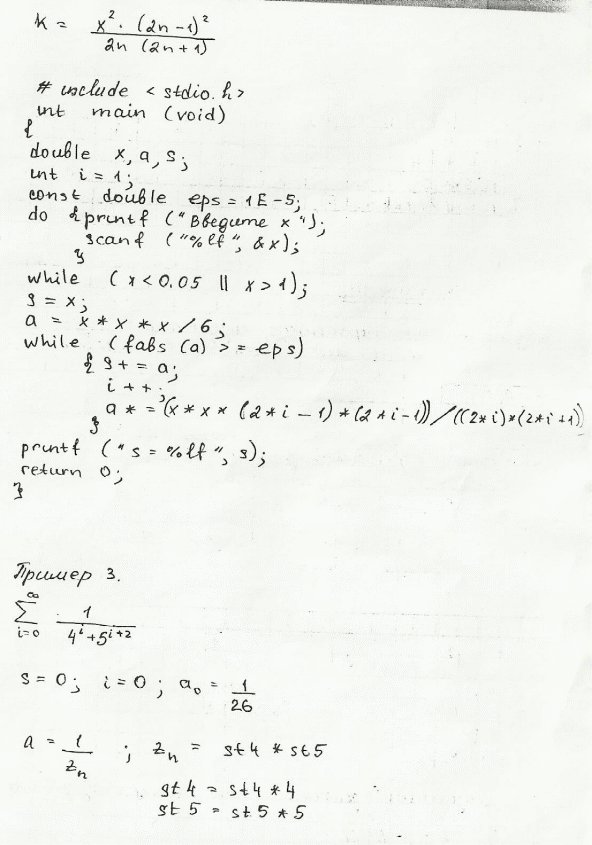 K = x². (2n-1)² / 2n (2n+1)
# include < stdio.h>
int main (void)
{
double x, a, s;
int i = 1;
const double eps = 1E-5;
do {printf ("Введите x");
scanf ("%lf", &x);
}
while (x < 0.05 || x > 1);
s = x;
a = x * x * x / 6;
while (fabs (a) >= eps)
{ s += a;
i ++;
a * = (x * x * (2*i - 1) * (2*i-1)) / ((2*i)*(2*i+1))
}
printf ("s = %lf", s);
return 0;
}
Пример 3.
∞ ∑ i=0 1 / 4^i+5^(i+2)
s = 0; i = 0; a₀ = 1/26
a = 1/zₙ ; zₙ = st4 * st5
st 4 = st4 * 4
st 5 = st 5 * 5